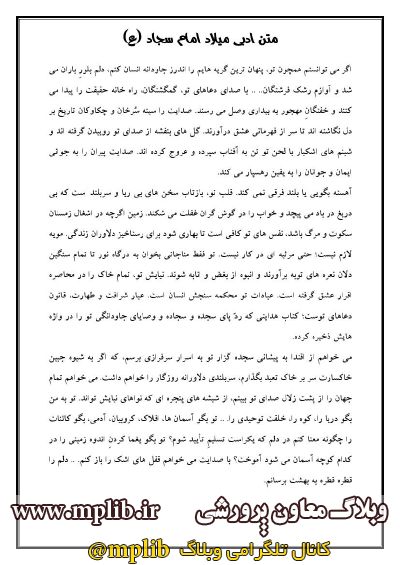 متن ادبی میلاد امام سجاد (ع)
اگر می توانستم همچون تو، پنهان ترین گریه هایم را اندرز جاودانه انسان کنم، دلم بلور باران می
شد و آوازم رشک فرشتگان.. .. با صدای دعاهای تو، گمگشتگان، راه خانه حقیقت را پیدا می
کنند و خفتگان مهجور به بیداری وصل می رسند. صدایت را سینه سُرخان و چکاوکان تاریخ بر
دل نگاشته اند تا سر از قهرمانی عشق درآورند. گل های بنفشه از صدای تو روییدن گرفته اند و
شبنم های اشکبار با لحن تو تن به آفتاب سپرده و عروج کرده اند. صدایت پیران را به جوانی
ایمان و جوانان را به یقین رهسپار می کند.
آهسته بگویی یا بلند فرقی نمی کند. قلب تو، بازتاب سخن های بی ریا و سربلند ست که بی
دریغ در باد می پیچد و خواب را در گوش گران غفلت می شکند. زمین اگرچه در اشغال زمستان
سکوت و مرگ باشد، نفس های تو کافی است تا بهاری شود برای رستاخیز دلاوران زندگی. مویه
لازم نیست؛ حتی مرثیه ای در کار نیست. تو فقط مناجاتی بخوان به درگاه نور تا تمام سنگین
دلان نعره های توبه برآورند و انبوه از بغض و تابه شوند. نیایش تو، تمام خاک را در محاصره
اقرار عشق گرفته است. عبادات تو محکمه سنجش انسان است. عیار شرافت و طهارت، قانون
دعاهای توست؛ کتاب هدایتی که ردّ پای سجده و سجاده و وصایای جاودانگی تو را در واژه
هایش ذخیره کرده.
می خواهم از اقتدا به پیشانی سجده گزار تو به اسرار سرفرازی برسم، که اگر به شیوه جبین
خاکسارت سر بر خاک تعبد بگذارم، سربلندی دلاورانه روزگار را خواهم داشت. می خواهم تمام
جهان را از پشت زلال صدای تو ببینم، از شیشه های پنجره ای که نواهای نیایش تواند. تو به من
بگو دریا را، کوه را، خلقت توحیدی را. .. تو بگو آسمان ها، افلاک، کروبیان، آدمی، بگو کائنات
را چگونه معنا کنم در دلم که یکراست تسلیم تأیید شوم؟ تو بگو یغما کردن اندوه زمینی را در
کدام کوچه آسمان می شود آموخت؟ با صدایت می خواهم قفل های اشک را باز کنم. .. دلم را
قطره قطره به بهشت برسانم.
وبلاگ معاون پرورشی www.mplib.ir
کانال تلگرامی وبلاگ @mplib